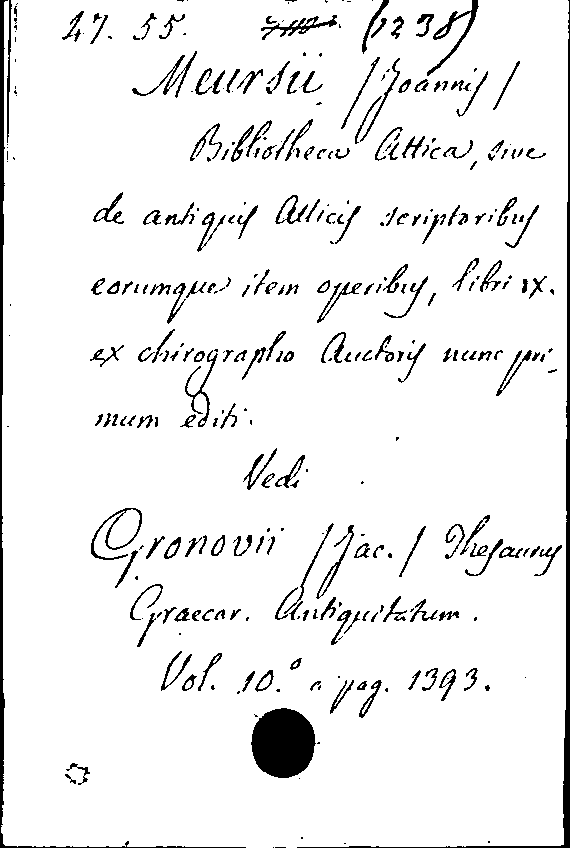 47. 55. (1238)
Meursii /Joannis/
Bibliotheca Attica, sive
de antiquis Atticis scriptoribus
eorumque item operibus, libri ıx.
ex chirographo Auctoris nunc pri-
mum editi.
Vedi
Gronovii /Jac./ Thesaurus
Graecar. Antiquitatum.
Vol. 10.º a pag. 1393.